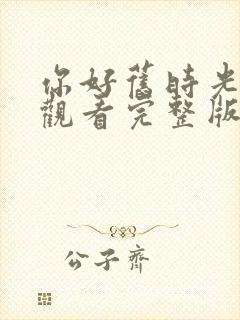 你好舊時光
觀看完整版
公子齊